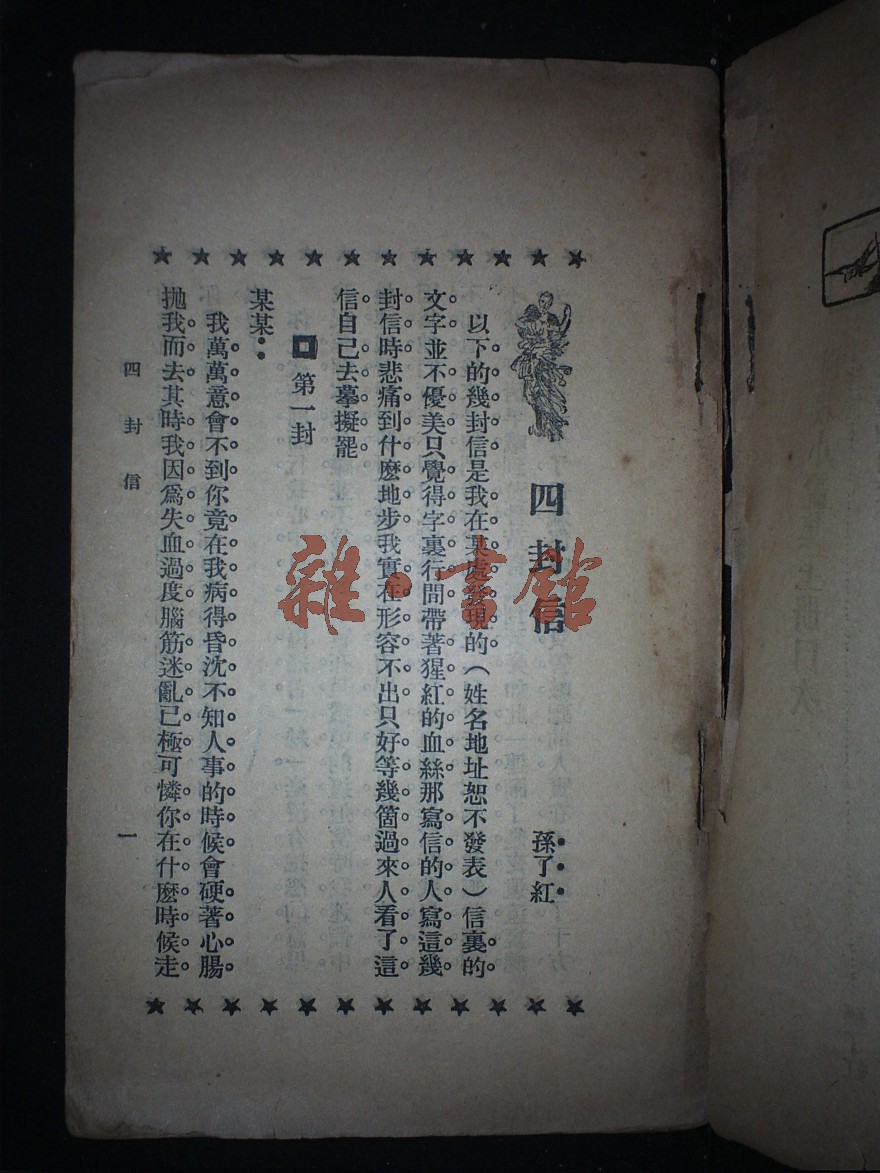 四封信
孫了紅
以下的幾封信是我在某處發現的(姓名地址恕不發表)信裏的
文字並不優美只覺得字裏行間帶著猩紅的血絲那寫信的人寫這幾
封信時悲痛到什麼地步我實在形容不出只好等幾箇過來人看了這
信自己去摹擬罷
第一封
某某:
我萬萬意會不到你竟在我病得昏沈不知人事的時候會硬著心腸
拋我而去其時我因爲失血過度腦筋迷亂已極可憐你在什麼時候走
四封信
一
雜·書館
上冊目次